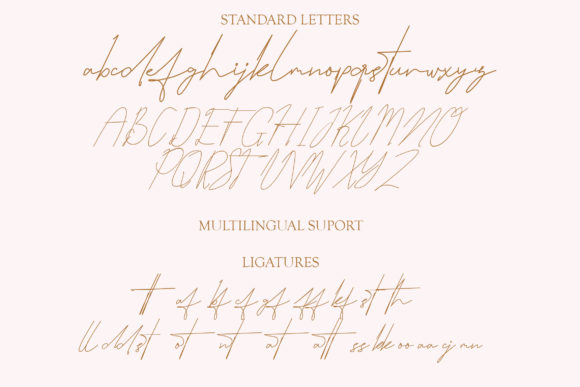 STANDARD LETTERS
abcdefghijklmnopqrstuvwxyz
ABCDEFGHIJKLMNO
PQRSTUVWXYZ
MULTILINGUAL SUPORT
LIGATURES
tt af bf cf gf ff kf st th
ll dd st ot nt at att ss kk oo aa cj mn